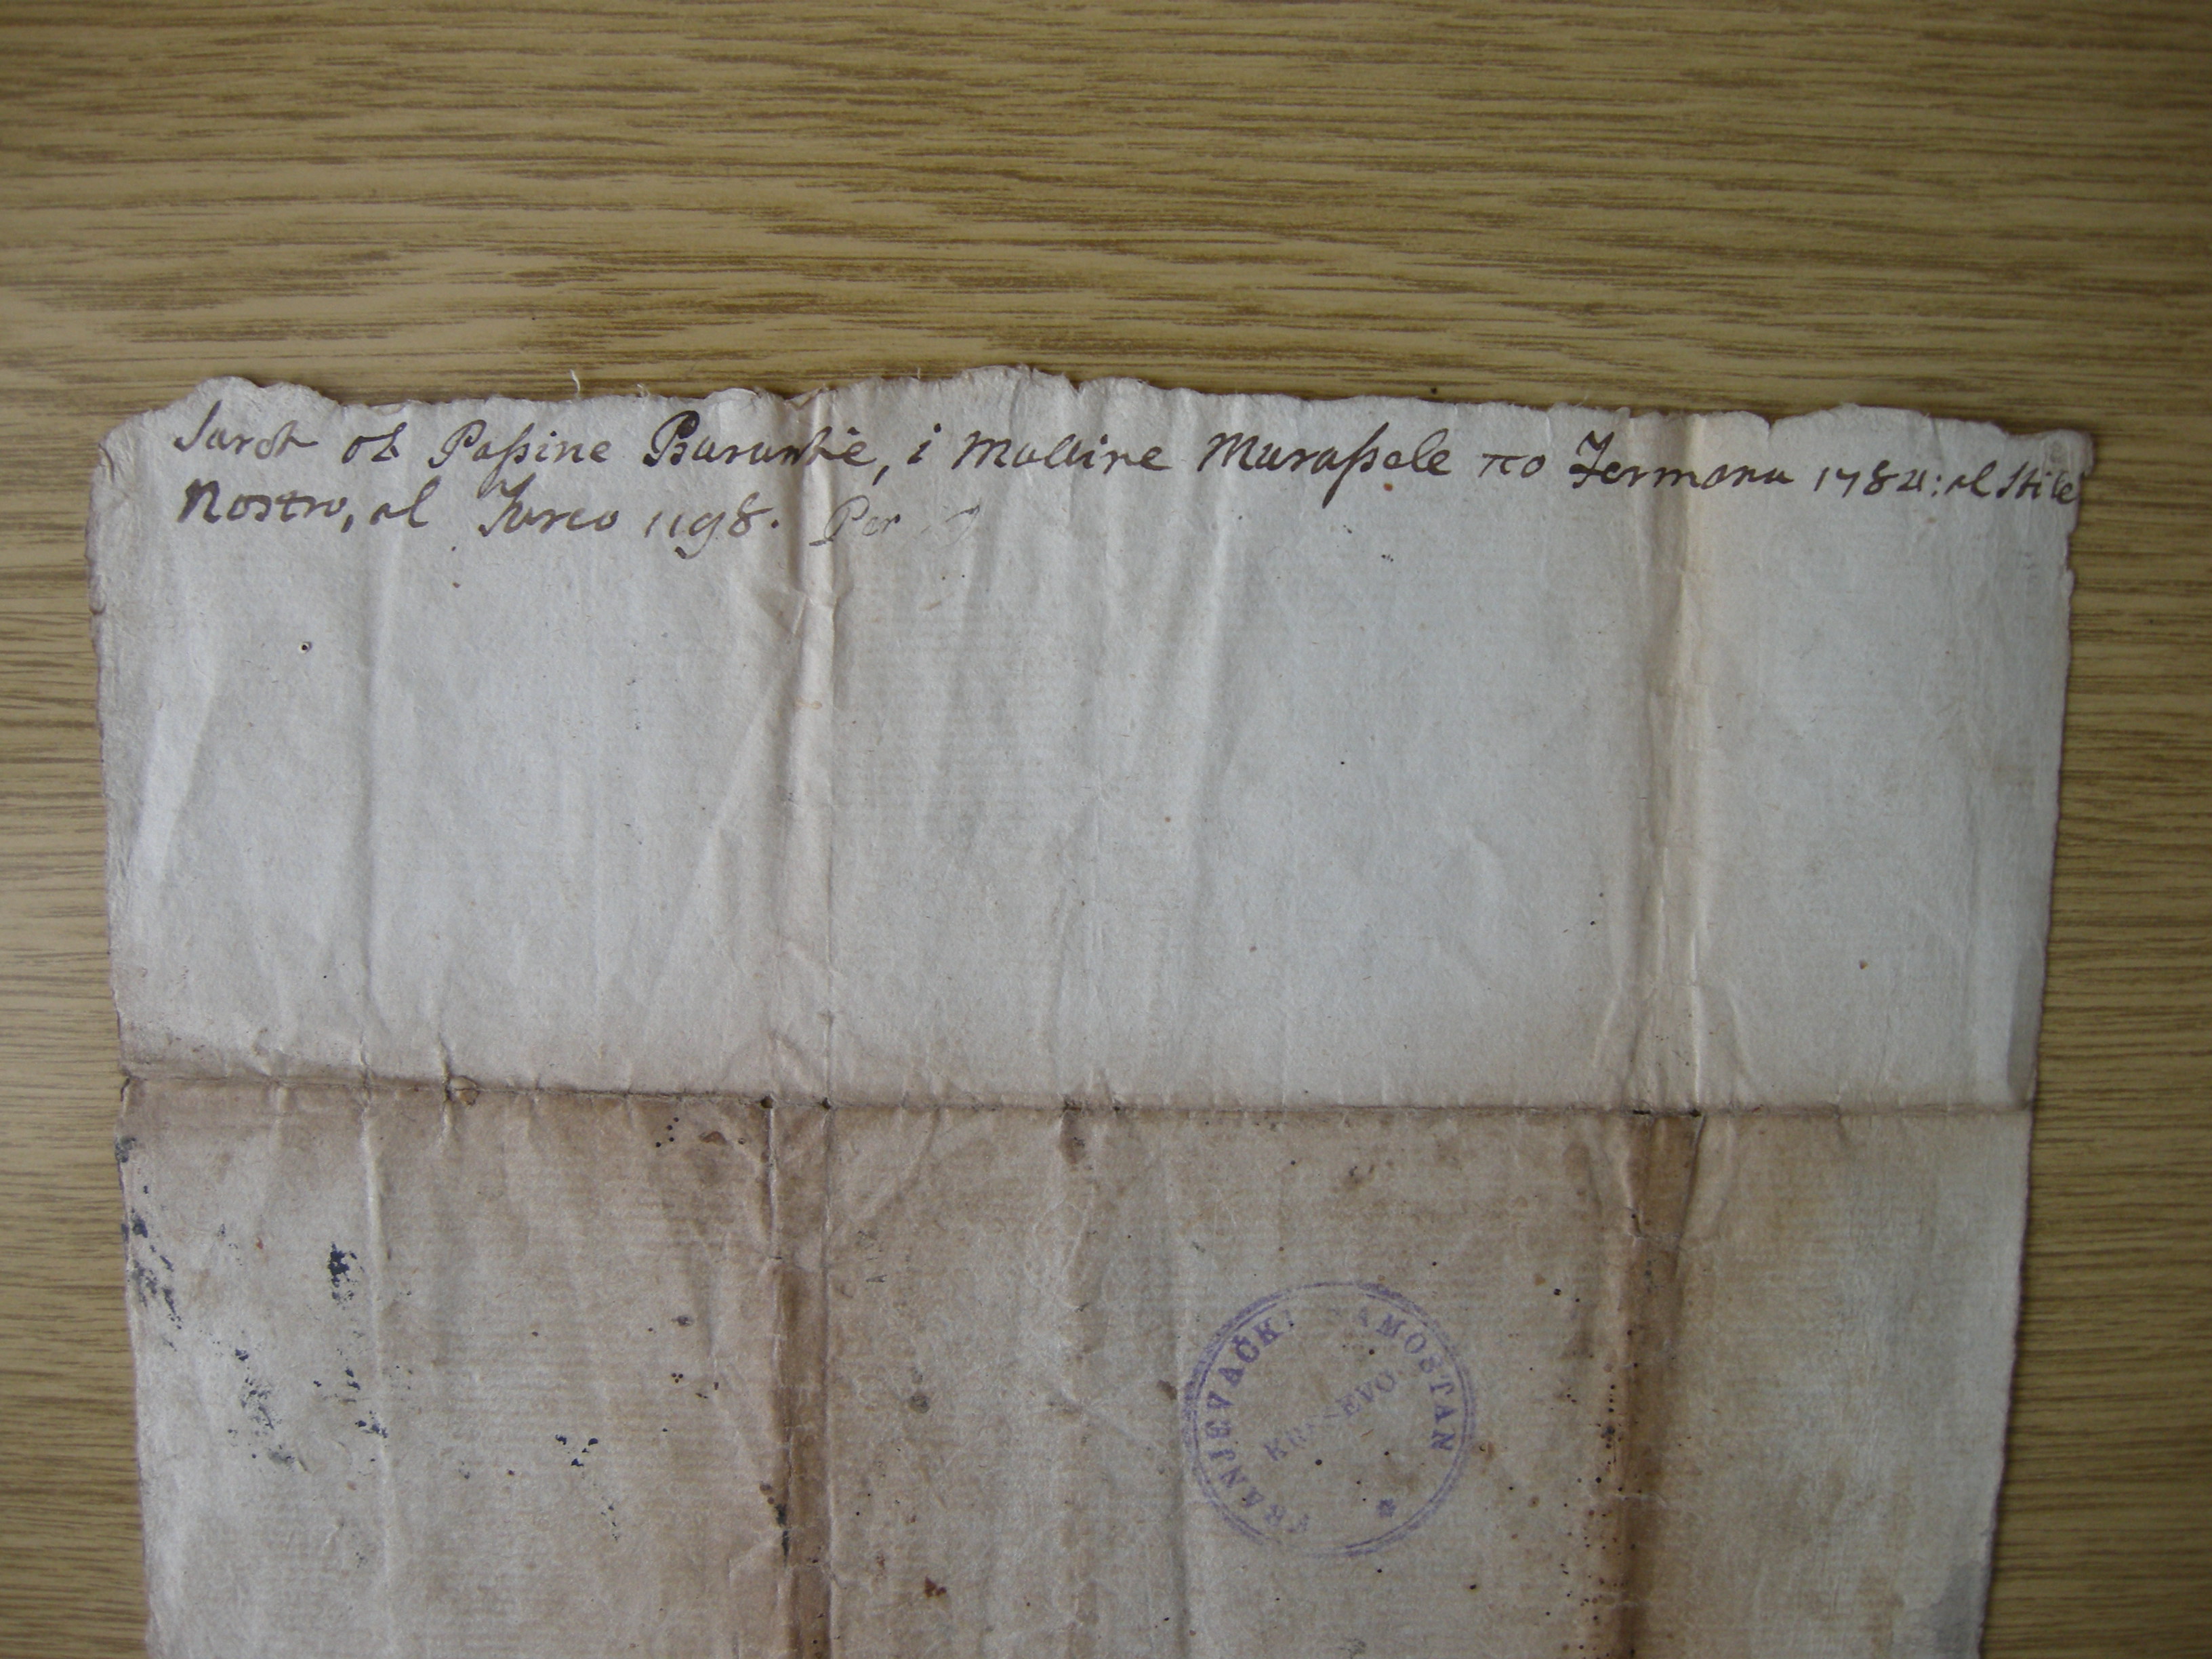 Sarct ot Paßine Baruntie, i Mallire Muraßele πo Fermanu 1784: al Stile
Nostro, al Turco 1198. Per
FRANJEVAČKI SAMOSTAN
KREŠEVO